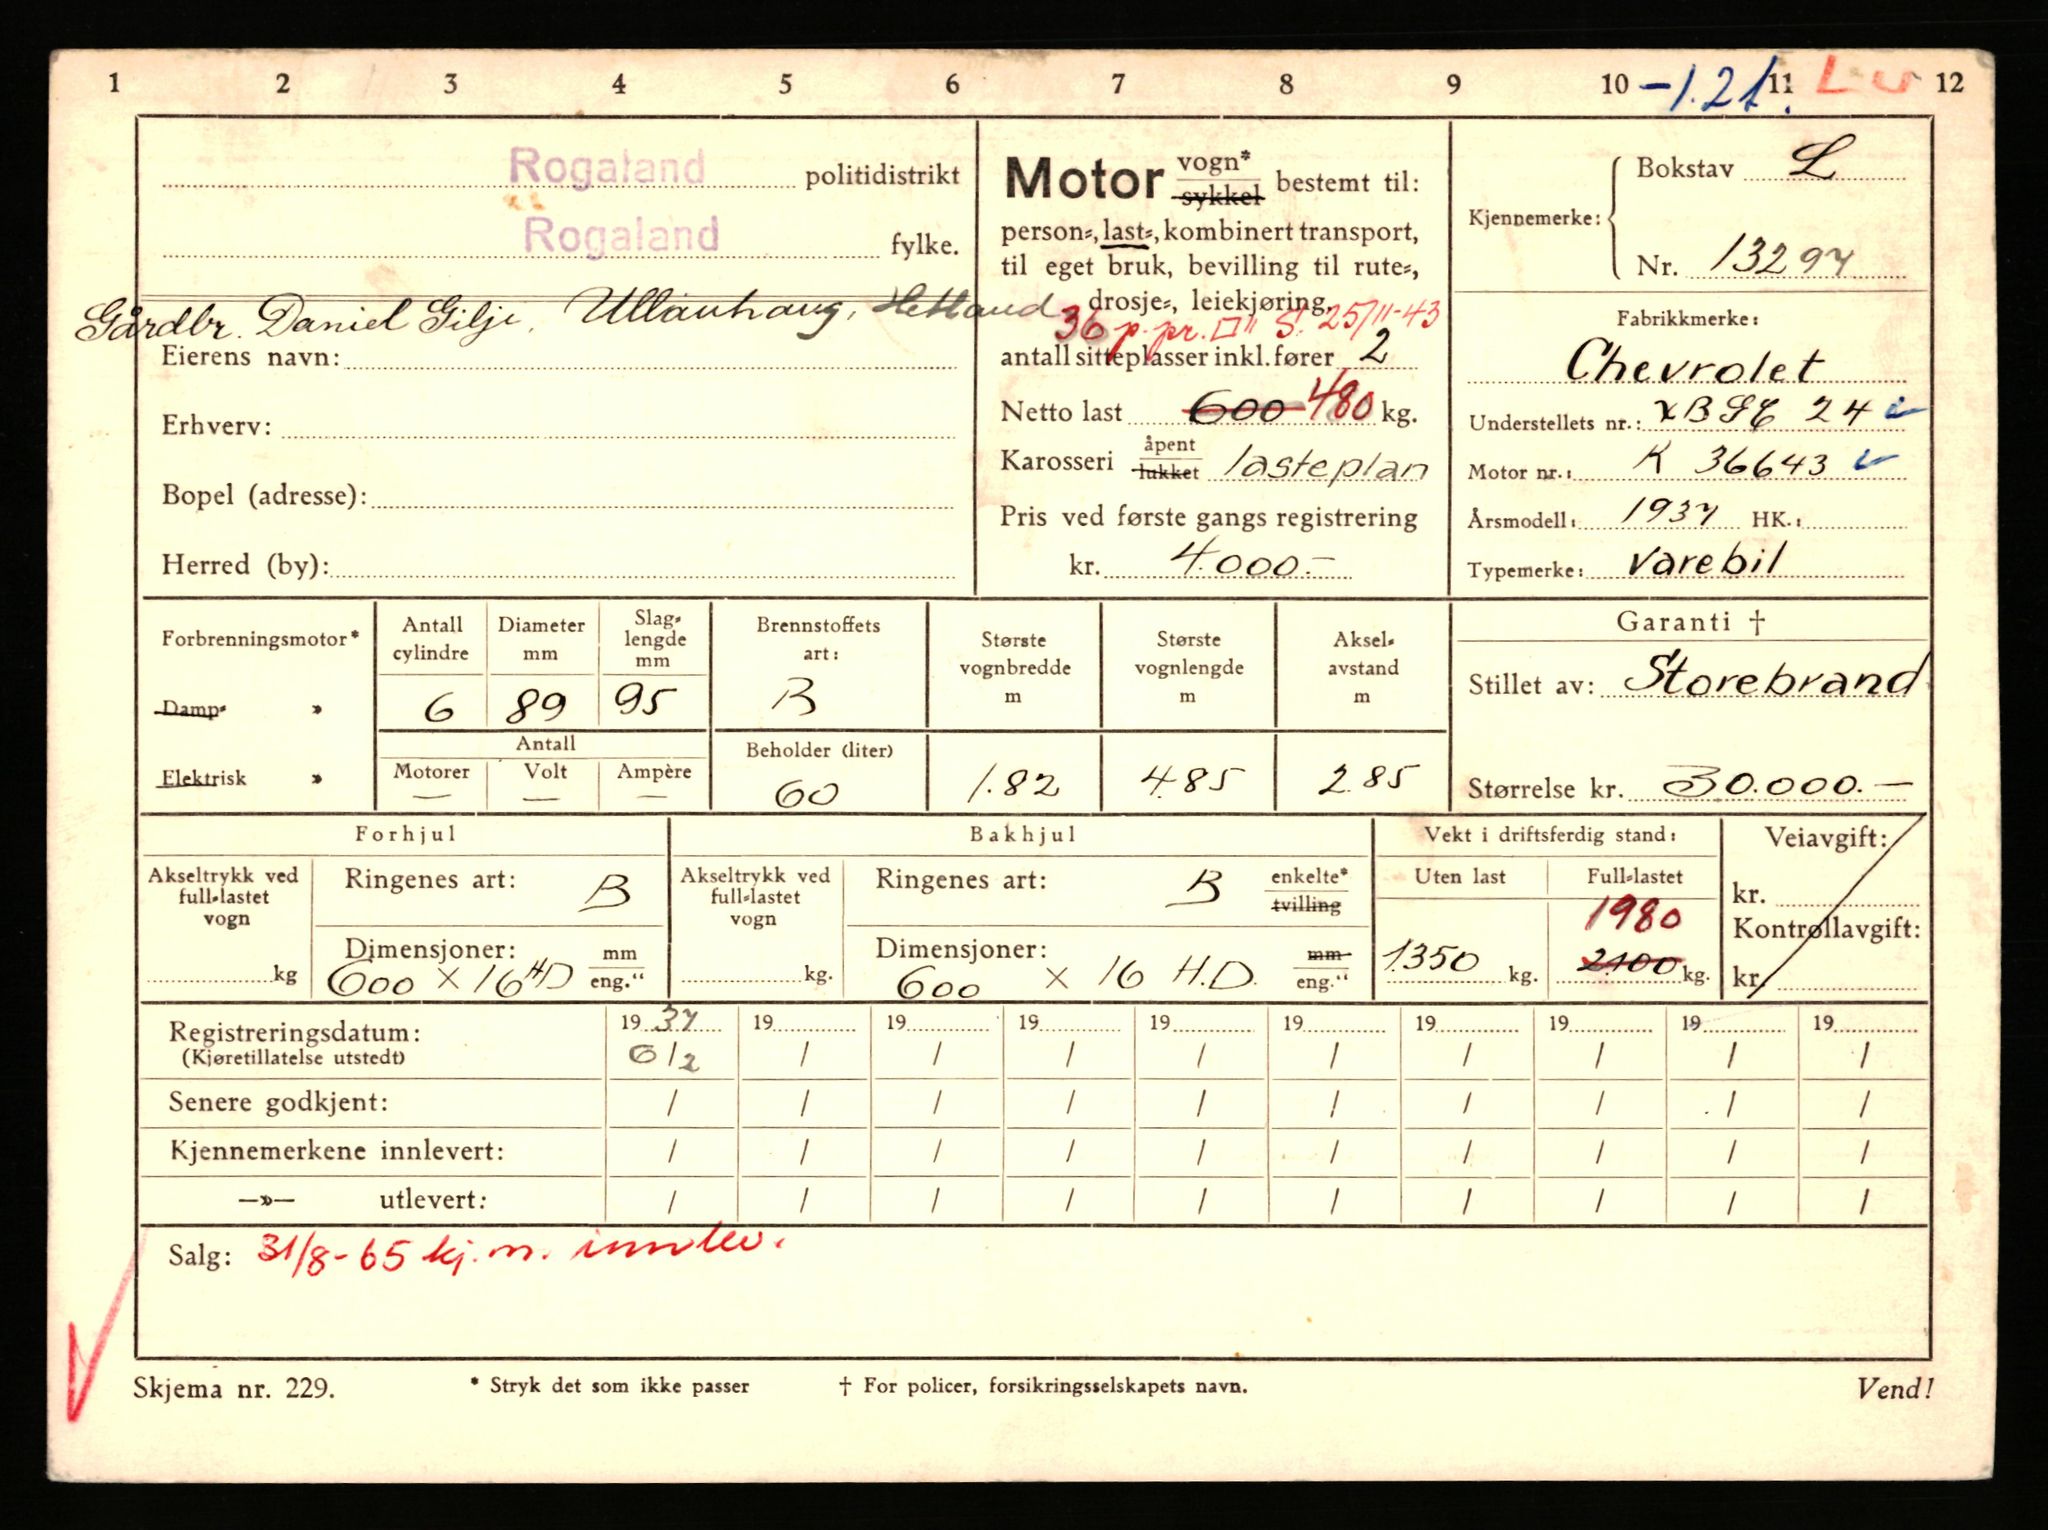 1 2 3 4 5 6 7 8 9 10 -1.21. 11 12
Rogaland politidistrikt
Rogaland fylke.
Gårdbr. Daniel Gilje, Ullanhaug, Hetland
Eierens navn:
Erhverv:
Bopel (adresse):
Herred (by):
Motor vogn* sykkel bestemt til:
person-, last-, kombinert transport,
til eget bruk, bevilling til rute-,
drosje-, leiekjøring,
36 p. pr. □" S. 25/11-43
antall sitteplasser inkl. fører 2
Netto last 600 480 kg.
Karosseri åpent lukket lasteplan
Pris ved første gangs registrering
kr. 4.000.-
Bokstav L
Kjennemerke:
Nr. 13297
Fabrikkmerke:
Chevrolet
Understellets nr.: xBGE 24
Motor nr.: K 36643
Årsmodell: 1937 HK.:
Typemerke: Varebil
Forbrenningsmotor*
Damp- »
Elektrisk »
Antall cylindre
6
Diameter mm
89
Slag-
lengde
mm
95
Antall
Motorer Volt Ampère
— — —
Brennstoffets
art:
B
Beholder (liter)
60
Største
vognbredde
m
1.82
Største
vognlengde
m
4.85
Aksel-
avstand
m
2.85
Garanti †
Stillet av: Storebrand
Størrelse kr. 30.000.—
Forhjul
Akseltrykk ved
full-lastet
vogn
kg
Ringenes art: B
Dimensjoner: mm
600 × 16 HD eng."
Bakhjul
Akseltrykk ved
full-lastet
vogn
kg.
Ringenes art: B enkelte* tvilling
Dimensjoner: mm
600 × 16 H.D. eng."
Vekt i driftsferdig stand:
Uten last Full-lastet
1980
1350 kg. 2100 kg.
Veiavgift:
kr.
Kontrollavgift:
kr.
Registreringsdatum: 19 37 19 19 19 19 19 19 19 19 19
(Kjøretillatelse utstedt) 6/2 / / / / / / / / /
Senere godkjent: / / / / / / / / / /
Kjennemerkene innlevert: / / / / / / / / / /
—»— utlevert: / / / / / / / / / /
Salg: 31/8-65 kj.m. innlev.
Skjema nr. 229. * Stryk det som ikke passer † For policer, forsikringsselskapets navn. Vend!